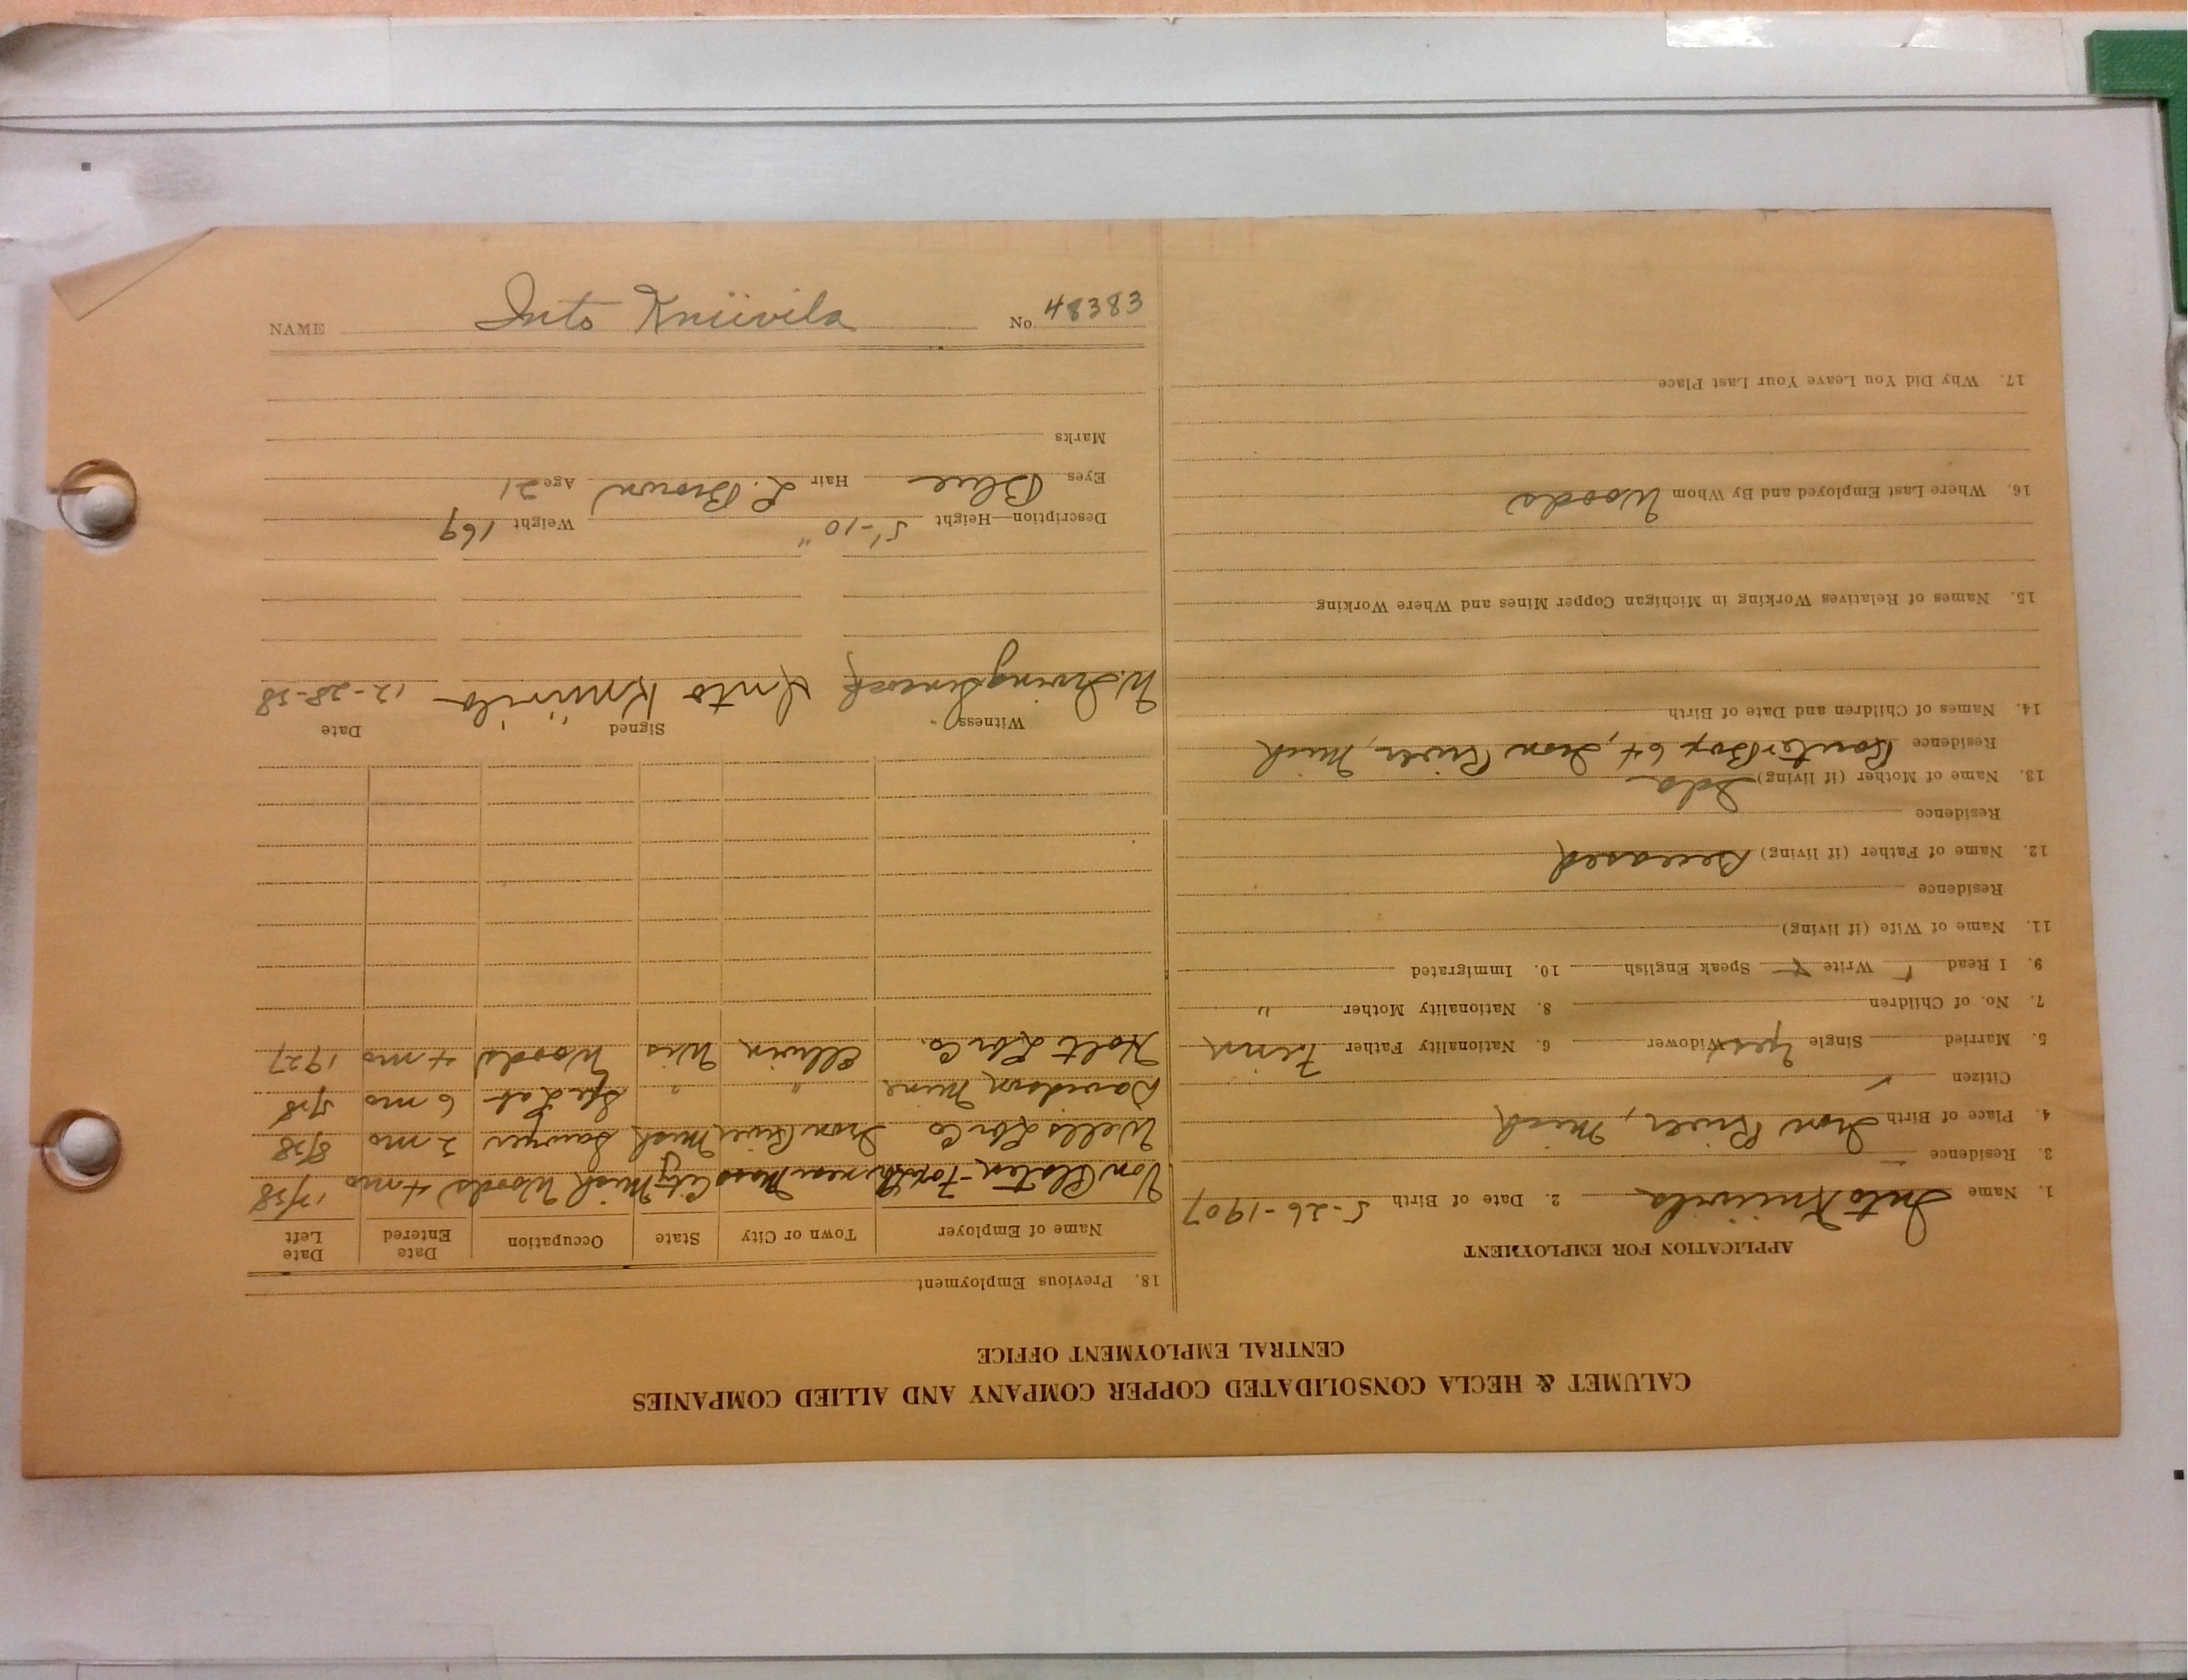 NAME Into Kniivila No. 48383
CALUMET & HECLA CONSOLIDATED COPPER COMPANY AND ALLIED COMPANIES
CENTRAL EMPLOYMENT OFFICE
APPLICATION FOR EMPLOYMENT
1. Name Into Kniivila 2. Date of Birth 5-26-1907
3. Residence
4. Place of Birth Iron River, Mich
Citizen ✓
5. Married Single yes Widower 6. Nationality Father Finn
7. No. of Children 8. Nationality Mother "
9. I Read Write Speak English 10. Immigrated
11. Name of Wife (if living)
Residence
12. Name of Father (if living) Deceased
Residence
13. Name of Mother (if living) Ida
Residence Box 64, Iron River, Mich
14. Names of Children and Date of Birth
15. Names of Relatives Working in Michigan Copper Mines and Where Working
16. Where Last Employed and By Whom Woods
17. Why Did You Leave Your Last Place
18. Previous Employment
Name of Employer Town or City State Occupation Date Entered Date Left
Von Platen-Fox near Mass City Mich Woods 4 mo
Wells Lbr Co Iron River Mich Sawyer 2 mo 8/28
Davidson Mine " " Lab 6 mo
Holt Lbr Co. Wis Woods 4 mo 1927
Witness Signed Date
W. Irving Into Kniivila 12-28-28
Description—Height 5'-10" Weight 169
Eyes Blue Hair L. Brown Age 21
Marks